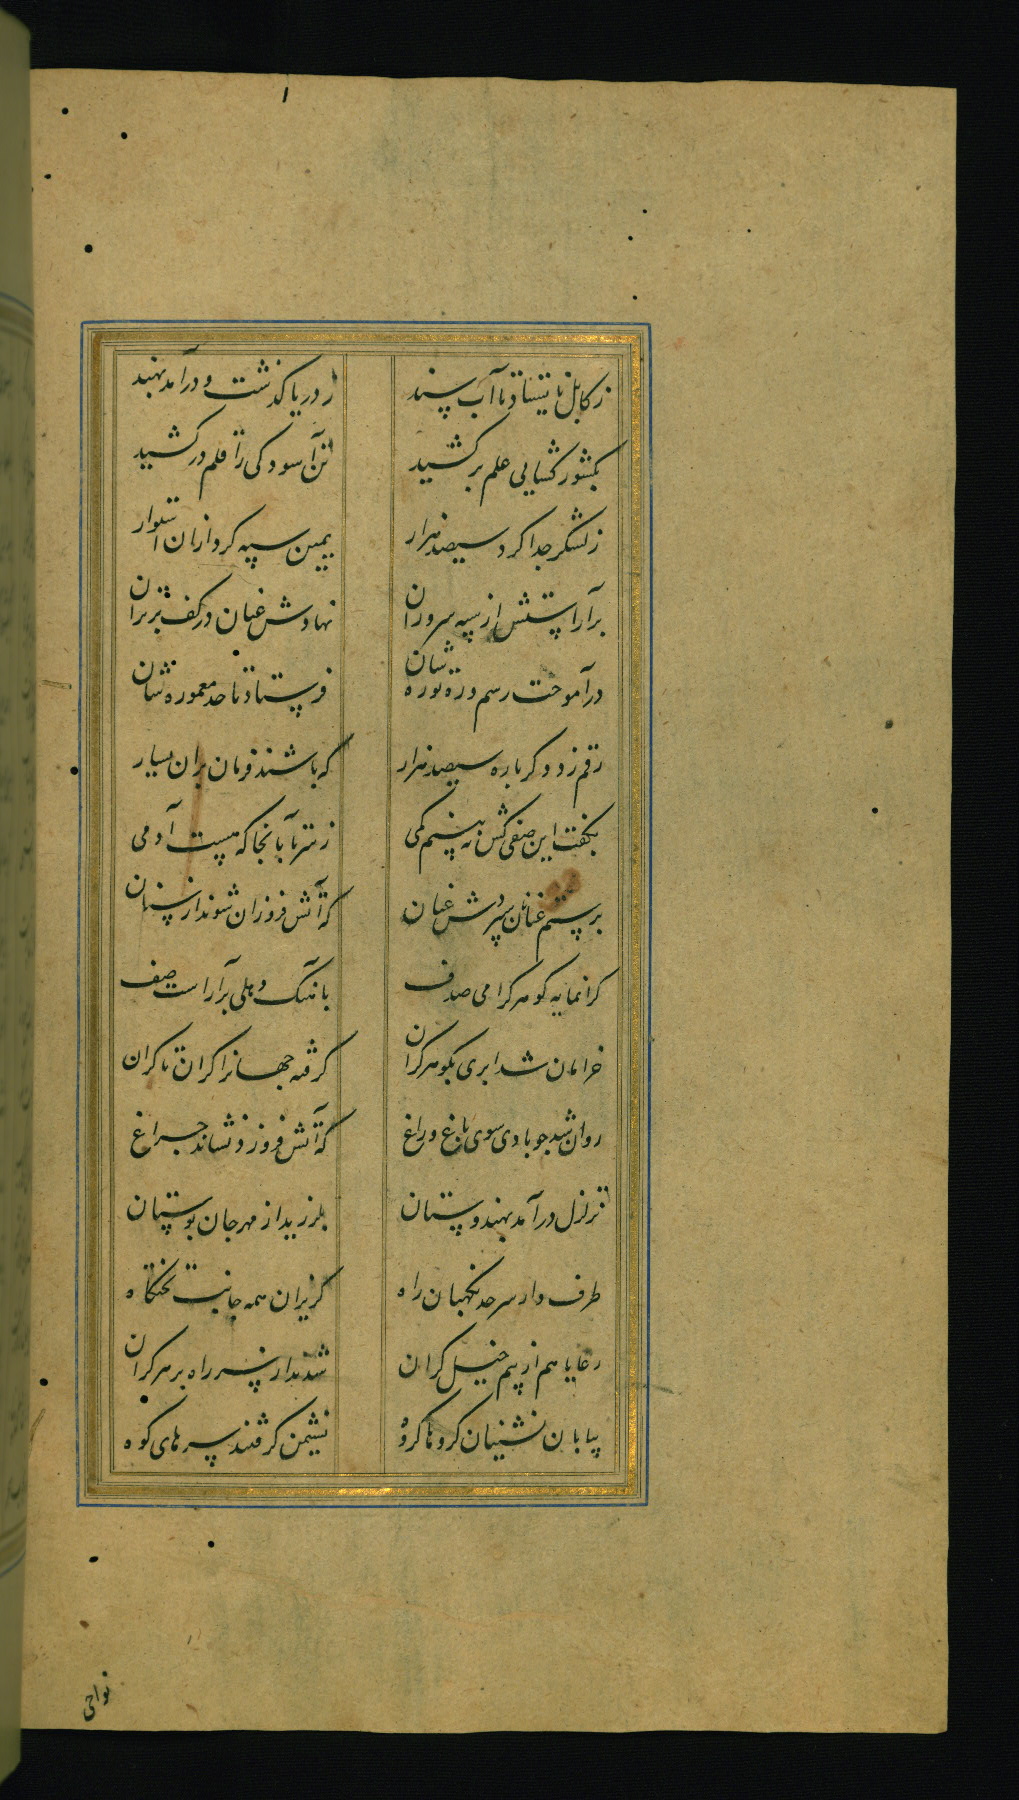 ز کابل نایستاد تا آب سند ز دریا گذشت و درآمد بهند
بکشور کشایی علم بر کشید تن آسودکی را قلم در کشید
ز لشکر جدا کرد سیصد هزار یمین سپه کرد ازان استوار
برآراستش از سپه سروران نهادش عنان در کف
درآموخت رسم و ره توره شان فرستاد تا حد معموره شان
رقم زد دکرباره سیصد هزار که باشند فرمان بران یسار
بکفت این صفی کش نه بینم کمی ز سر تا بآنجا که هست آدمی
برستم عنانان سپردش عنان که آتش فروزان شوند از سنان
کرانمایه کوهر کرامی صدف بآهنک دهلی برآراست صف
خرامان شد ابری بکوهر کران کرفته جهانرا کران تا کران
روان شد جو بادی سوی باغ و راغ که آتش فروزد نشاند جراغ
تزلزل درآمد بهندوستان بلرزید از مهرجان بوستان
طرف دار سرحد نکهبان راه کریزان همه جانب تختکاه
رعایا هم از بیم خیل کران شدند از سر راه بر هر کران
بیابان نشینان کروها کروه نشیمن کرفتند سرهای کوه
نواحی